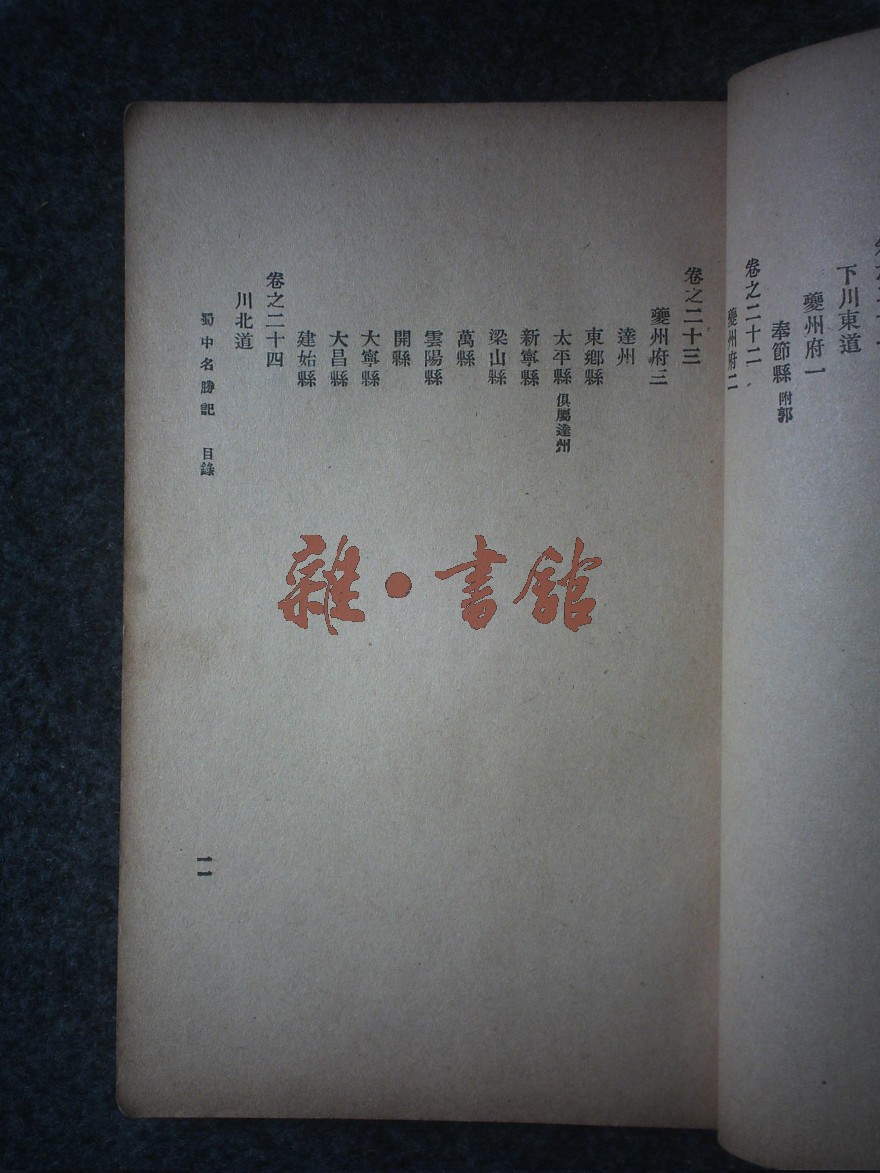 下川東道
夔州府一
奉節縣 附郭
卷之二十二
夔州府二
卷之二十三
夔州府三
達州
東鄉縣
太平縣 俱屬達州
新寧縣
梁山縣
萬縣
雲陽縣
開縣
大寧縣
大昌縣
建始縣
卷之二十四
川北道
蜀中名勝記 目錄
一一
雜·書館